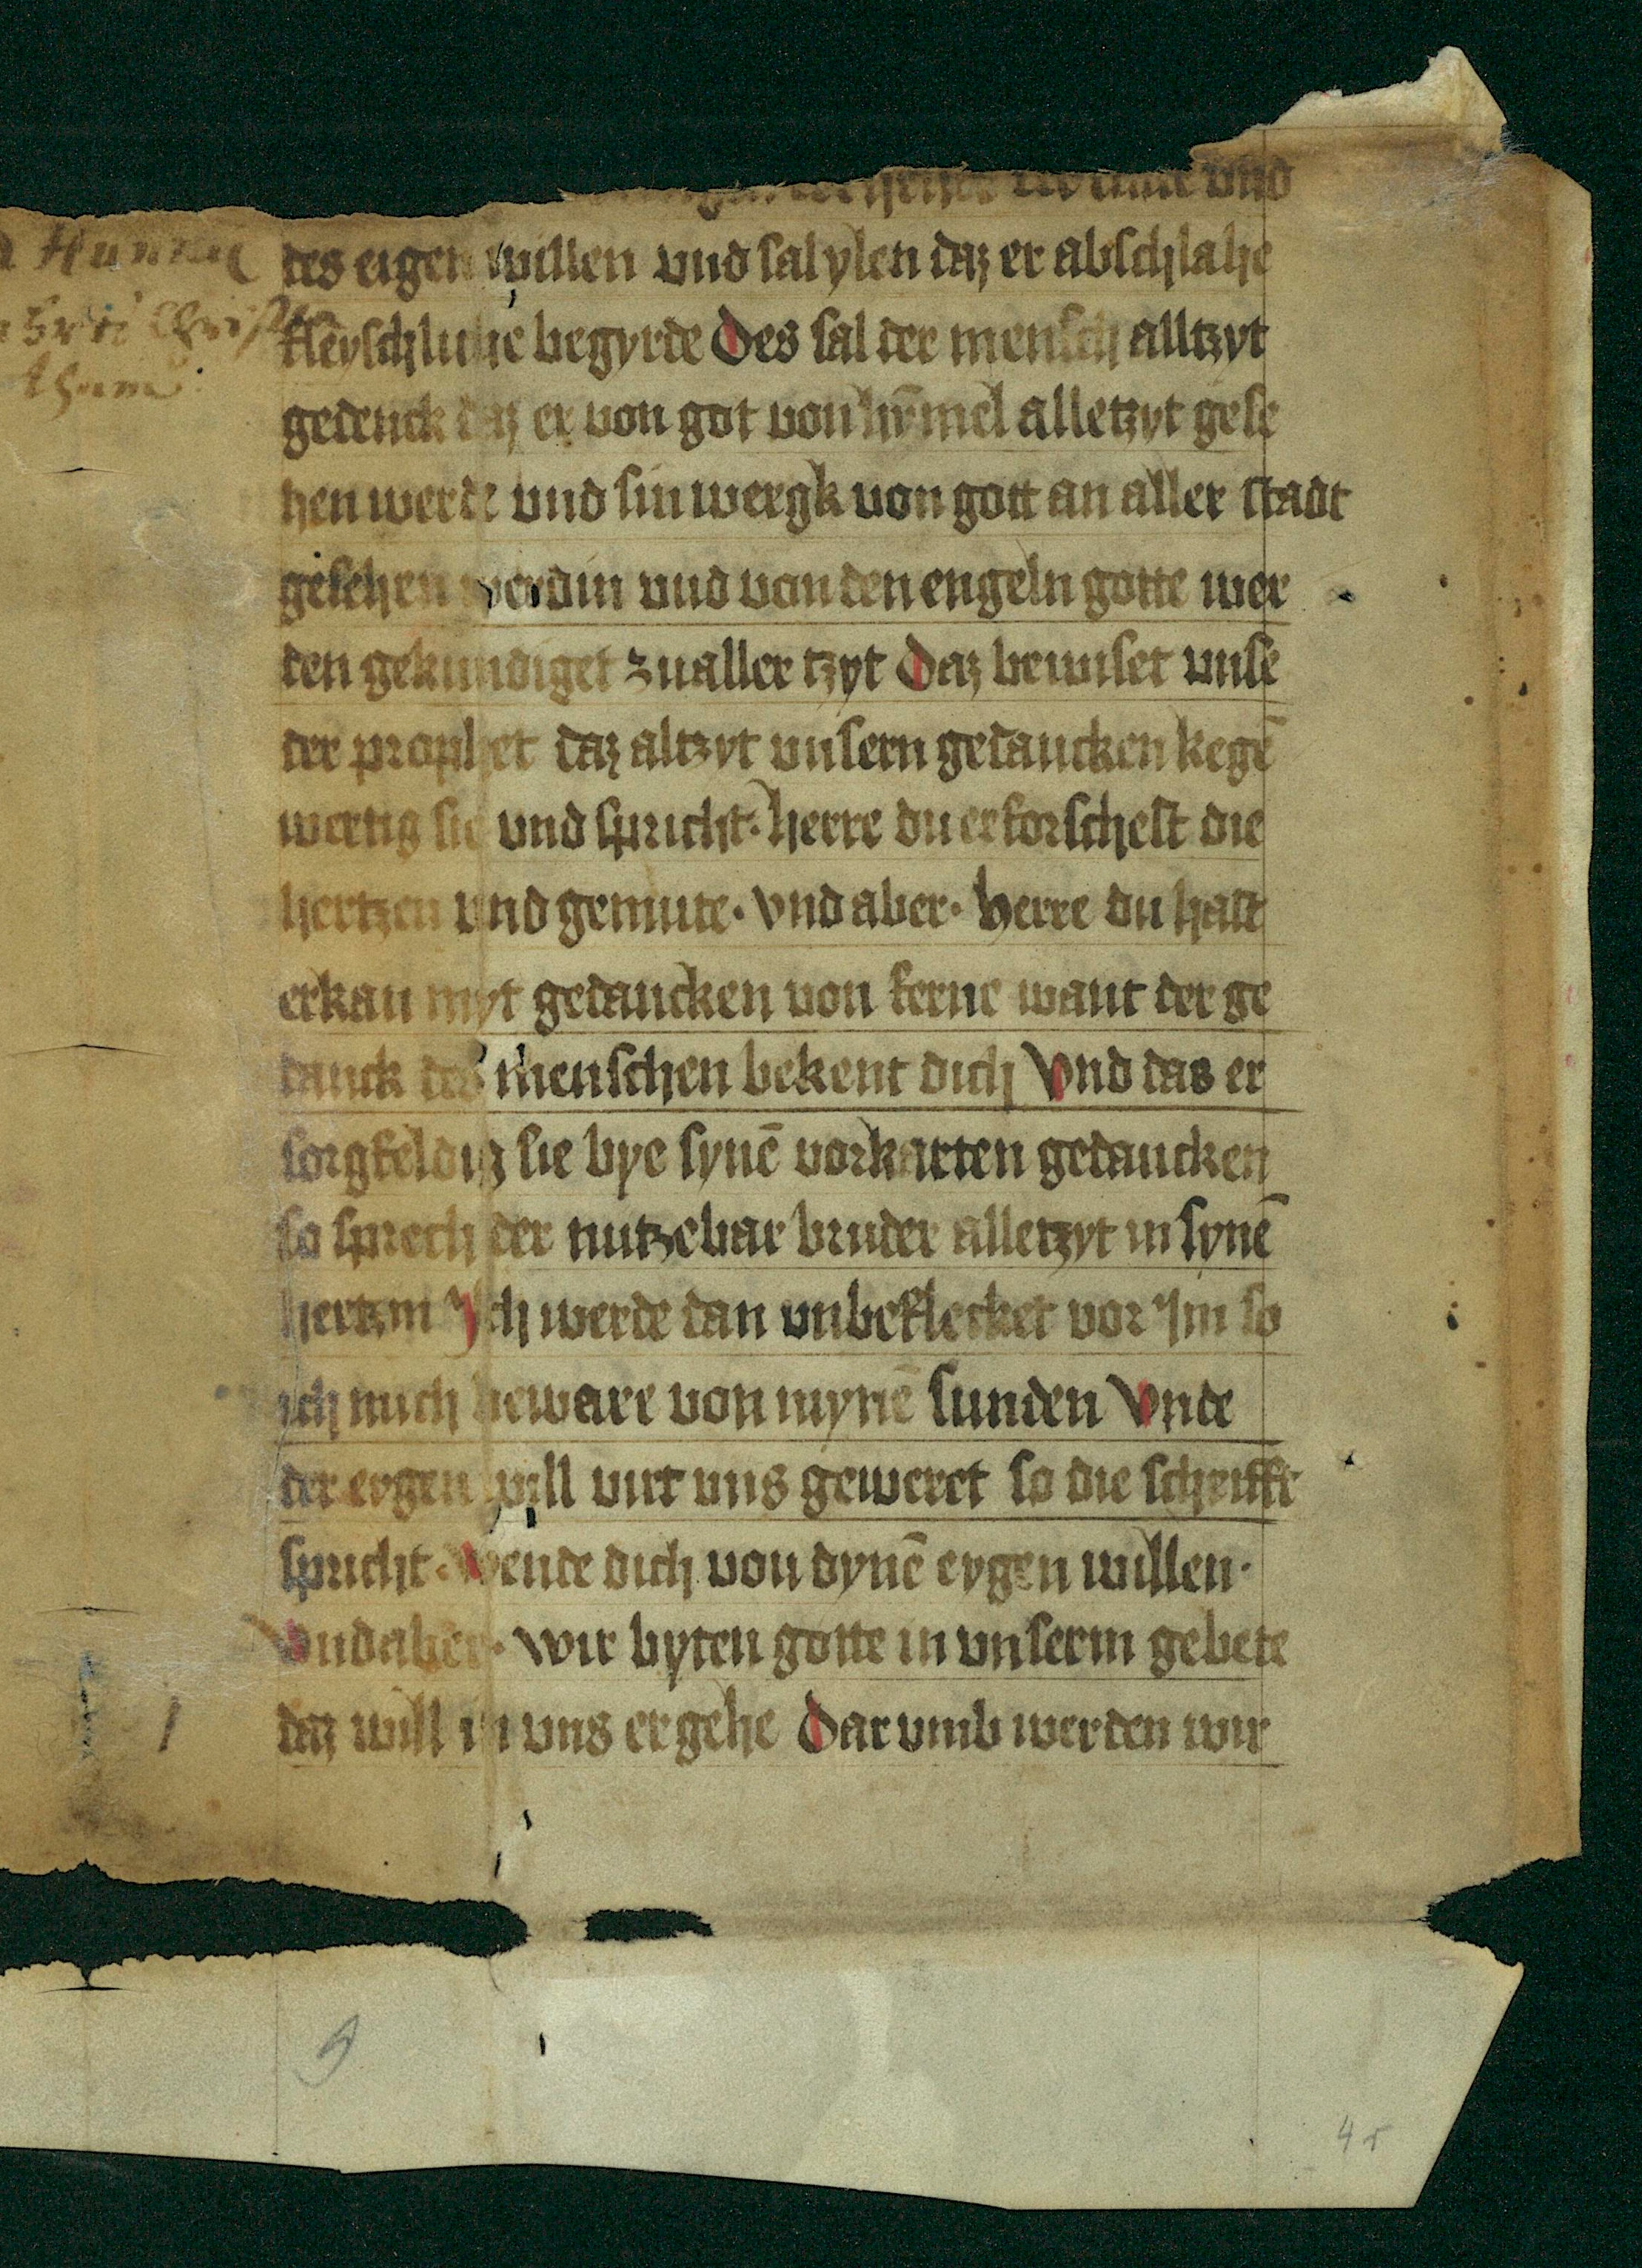 vnd
des eigen willen vnd sal ylen daz er abschlahe
fleyschliche begyrde Des sal der mensch alltzyt
gedenck daz er von got von hÿmel alletzyt gese
hen werde vnd sin wergk von gott an aller stadt
gesehen werdin vnd von den engeln gotte wer
den gekundiget zu aller tzyt Daz bewiset vnse
der prophet daz altzyt vnsern gedancken kegē
wertig sie vnd spricht · herre du erforschest die
hertzen vnd gemute · vnd aber · herre du hast
erkan myt gedancken von ferne want der ge
danck des menschen bekent dich Vnd das er
sorgfeldig sie bye synē vorkarten gedancken
so sprech der nutzebar bruder alletzyt in synē
hertzin Ych werde dan vnbeflecket vor im so
ich mich beware von mynē sunden Vnde
der eygen will wirt vns geweret so die schrifft
spricht · Wende dich von dynē eygen willen ·
Vnd aber · wir byten gotte in vnserm gebete
daz will in vns ergehe Dar vmb werden wir
9